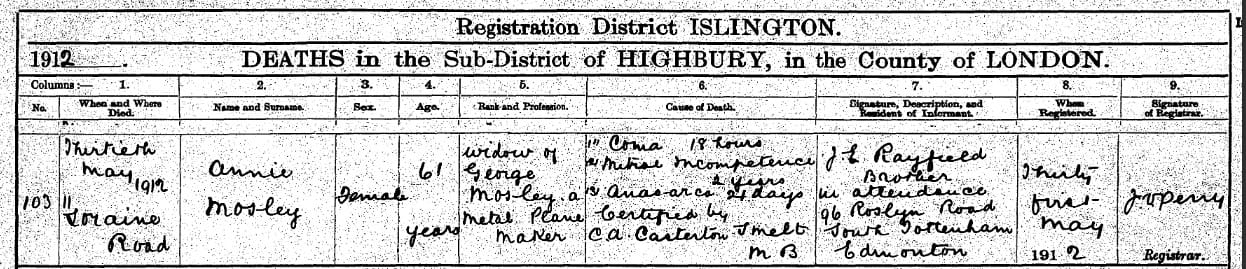 Registration District ISLINGTON.
1912. DEATHS in the Sub-District of HIGHBURY, in the County of LONDON.
Columns:— 1. 2. 3. 4. 5. 6. 7. 8. 9.
No. When and Where Died. Name and Surname. Sex. Age. Rank and Profession. Cause of Death. Signature, Description, and Resident of Informant. When Registered. Signature of Registrar.
103
Thirtieth
May 1912
11
Loraine
Road
Annie
Mosley
Female
61
years
widow of
George
Mosley, a
Metal Plane
Maker
(1) Coma 18 hours
(2) Mitral Incompetence
2 years
(3) Anasarca 21 days
Certified by
C.A. Casterton Smelt
M B
J L Rayfield
Brother
in attendance
96 Roslyn Road
South Tottenham
Edmonton
Thirty
first
May
1912
J V Perry
Registrar.